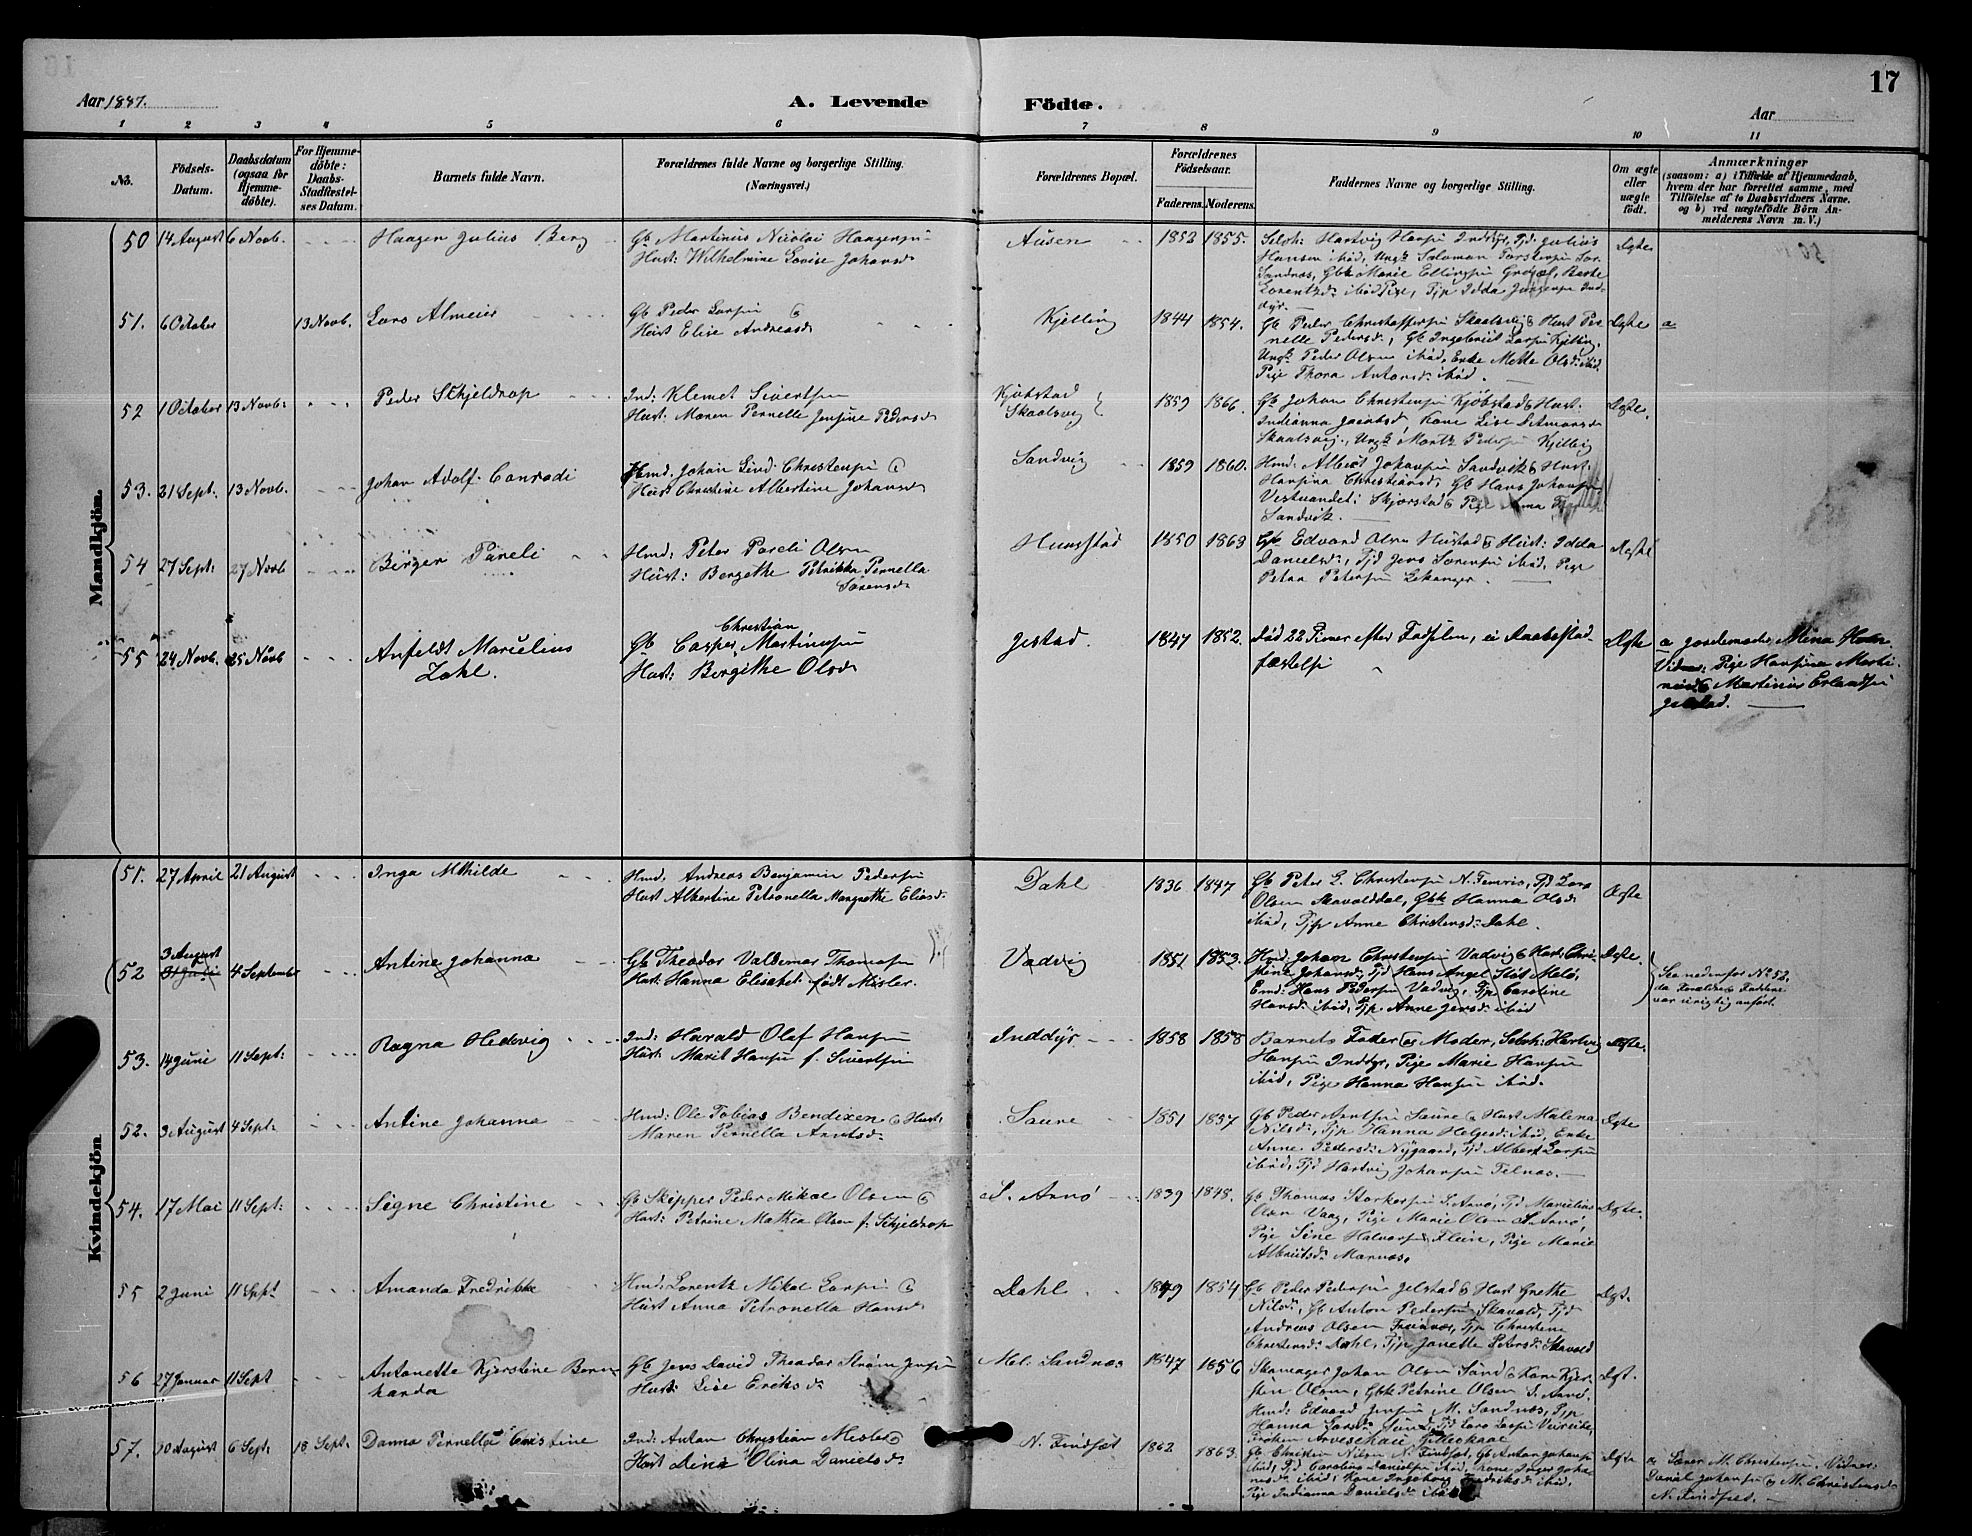 17
Aar 1887.
A. Levende Födte.
Aar
1 2 3 4 5 6 7 8 9 10 11
No.
Födsels-Datum.
Daabsdatum (ogsaa for Hjemme-döbte).
For Hjemme-döbte: Daabs-Stadfæstel-ses Datum.
Barnets fulde Navn.
Forældrenes fulde Navne og borgerlige Stilling. (Næringsvei.)
Forældrenes Bopæl.
Forældrenes Födselsaar.
Faderens. Moderens.
Faddernes Navne og borgerlige Stilling.
Om ægte eller uægte födt.
Anmærkninger
(saasom: a) i Tilfælde af Hjemmedaab,
hvem der har forrettet samme, med
Tilföielse af to Daabsvidners Navne.
og b) ved uægtefödte Börn An-
melderens Navn m. V.)
Mandkjön.
50 14 August 6 Novb. Haagen Julius Berg
Gb Martinus Nicolai Haagensen
Hust: Wilhelmine Lovise Johansd
Ausen 1852 1855.
Selveh: Hartvig Hansen Inddyr, Tjd. Julius
Hansen ibid, Ungk Salomon Torstensen
Sandnæs, Gbk Marie Ellingsen
ibid Pige, Tjp Idda Jörgensen Ind-
dyr.
Ægte
51. 6 October 13 Novb. Lars Almeier
Gb Peder Larsen &
Hust Elise Andreasd
Kjelling 1844 1854.
Gb Peder Christoffersen Skaalsvig & Hust Per-
nelle Pedersd, Gb Ingebrigt Larsen Kjelling,
Ungk Peder Olsen ibid, Enke Mette Olsd: ibid.
Pige Thora Antonsd: ibid.
Ægte a
52 1 October 13 Novb: Peder Schjeldrop
Ind: Klemet Sivertsen
Hust: Maren Pernelle Jensine Pedersd
Kjöbstad
Skaalsvig 1859 1866.
Gb Johan Christensen Kjöbstad & Hust:
Indianna Jacobsd, Kone Lise
Skaalsvig, Ungk Mortz Pedersen Kjelling
Ægte.
53. 21 Sept: 13 Novb. Johan Adolf Conradi
Hmd. Johan Lind Christensen &
Hust Christine Albertine Johansd
Sandvig 1859 1860.
Hmd: Albert Johansen Sandvik & Hust:
Hansina Christiansd, Gb Hans Johansen
Vestvandet i Skjerstad & Pige Anna
Sandvik.
54 27 Sept: 27 Novb Birger Pareli
Hmd: Peter Pareli Olsen
Hust: Bergethe Petrikka Pernella
Sörensd
Hunstad 1850 1863
Gb Edvard Olsen Hustad & Hust: Idda
Danielsd:, Tjd Jens Sörensen ibid, Pige
Petra Petersen Lekanger.
Ægte
55 24 Novb. 25 Novb Anfeldt Marielius
Zahl.
Christian
Gb Casper Martinusen
Hust: Bergithe Olsd
Jestad. 1847 1852.
Död 22 Timer efter Födselen, ei Daabsstad-
fæstelse
Ægte
a Jordemoder Mina
Vidner: Pige Hansina Marti-
nusd & Martinus Erlandsen
Jelstad.
Kvindekjön.
51. 27 April 21 August Inga Mthilde
Hmd. Andreas Benjamin Pedersen
Hust Albertine Petronella Margrethe Eliasd:
Dahl 1836 1847
Gb Peter L. Christensen N. Femris, Tjd Lars
Olsen Skavolddal, Gbk Hanna Olsd
ibid, Tjp Anne Christensd: Dahl.
Ægte
52 3 August 4 September Antine Johanna
Gb Theodor Valdemar Thomasen
Hust: Hanna Elisabet født Misler.
Vadvig 1851 1853.
Hmd. Johan Christensen Vadvig & Hust: Chri-
stine Johansd, Tjd Hans Angel Meló,
Emd: Hans Pedersen Vadvig, Tjp Caroline
Hansd: ibid, Tjp Anne Jensd: ibid
Ægte.
See nedenfor No 52,
da Forældre & Faddere
var urigtig anført.
53. 14 Juni 11 Sept: Ragna Hedevig
Ind: Harald Olaf Hansen
Hust: Marit Hansen f. Sivertsen
Inddyr 1858 1858
Barnets Fader og Moder, Selveh: Hartvig
Hansen Inddyr, Pige Marie Hansen
ibid, Pige Hanna Hansen ibid.
Ægte.
52. 3 August 4 Sept: Antine Johanna
Hmd: Ole Tobias Bendixen & Hust:
Maren Pernella Arntsd:
Saure 1851 1857
Gb Peder Arntsen Saure & Hust Malena
Nilsd:, Tjp Hanna Helgesd: ibid, Enke
Anne Pedersd: Nygaard, Tjd Albert Larsen
ibid, Tjd Hartvig Johansen Telnæs.
Ægte
54. 17 Mai 11 Sept: Signe Christine
Gb Skipper Peder Mikal Olsen &
Hust: Petrine Mathea Olsen f: Schjeldrop
S. Arnö 1839 1848.
Gb Thomas Storkersen S. Arnö, Tjd Marielius
Olsen Vaag, Pige Marie Olsen S. Arnö,
Pige Sine Halvorsen Fleine, Pige Marie
Albrigtsd: Marnæs.
Ægte.
55 2 Juni 11 Spt Amanda Fredrikke
Hmd: Lorentz Mikal Larsen &
Hust Anna Petronella Hansd
Dahl 1849 1854
Gb Peder Pedersen Jelstad & Hust Grethe
Nilsd:, Gb Anton Pedersen Skavold, Tjd
Andreas Olsen, Tjp Christine
Christensd: Dahl, Tjp Janette Petersd: Skavold
Ægt.
56 27 Januar 11 Sept Antonette Kjerstine Bern-
harda
Gb Jens David Theodor Ström Jensen
Hust: Lise Eriksd
Mel. Sandnæs 1847 1856
Skomager Johan Olsen Sund & Kone Kjer-
sten Olsen, Gbk Petrine Olsen S. Arnö.
Hmd: Edvard Jensen M. Sandnæs, Tjp
Hanna Larsd: Sund, Tjd Lars Larsen
Fröken
Ægt.
57. 20 August 6 Sept. 18 Sept. Danna Pernella Christine
Ind: Anton Christian Misler &
Hust Dina Olina Danielsd
N. Findset 1862 1863.
Gb Christen Nilsen N. Findset, Gb Anton Johansen
ibid, Tjd Carolina Danielsen ibid, Kone Inger Joha-
nesd: ibid, Kone Ingeborg Fredriksd: ibid,
Pige Indianna Danielsd ibid
Ægte
a Lærer M. Christensen. Vidner:
Daniel Johansen & M. Christensd
N. Findset.